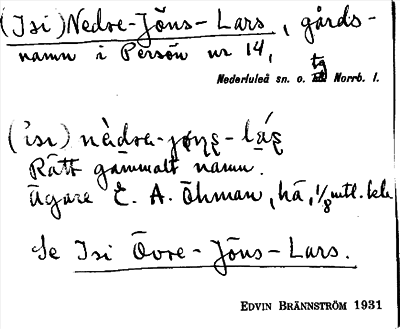 (Isi) Nedre-Jöns-Lars, gårds-
namn i Persön nr 14,
Nederluleå sn. o. tg Norrb. l.
(ısı) nèdra-
Rätt gammalt namn.
Ägare E. A. Öhman, hä, 1/8 mtl.
Se Isi Övre-Jöns-Lars.
EDVIN BRÄNNSTRÖM 1931